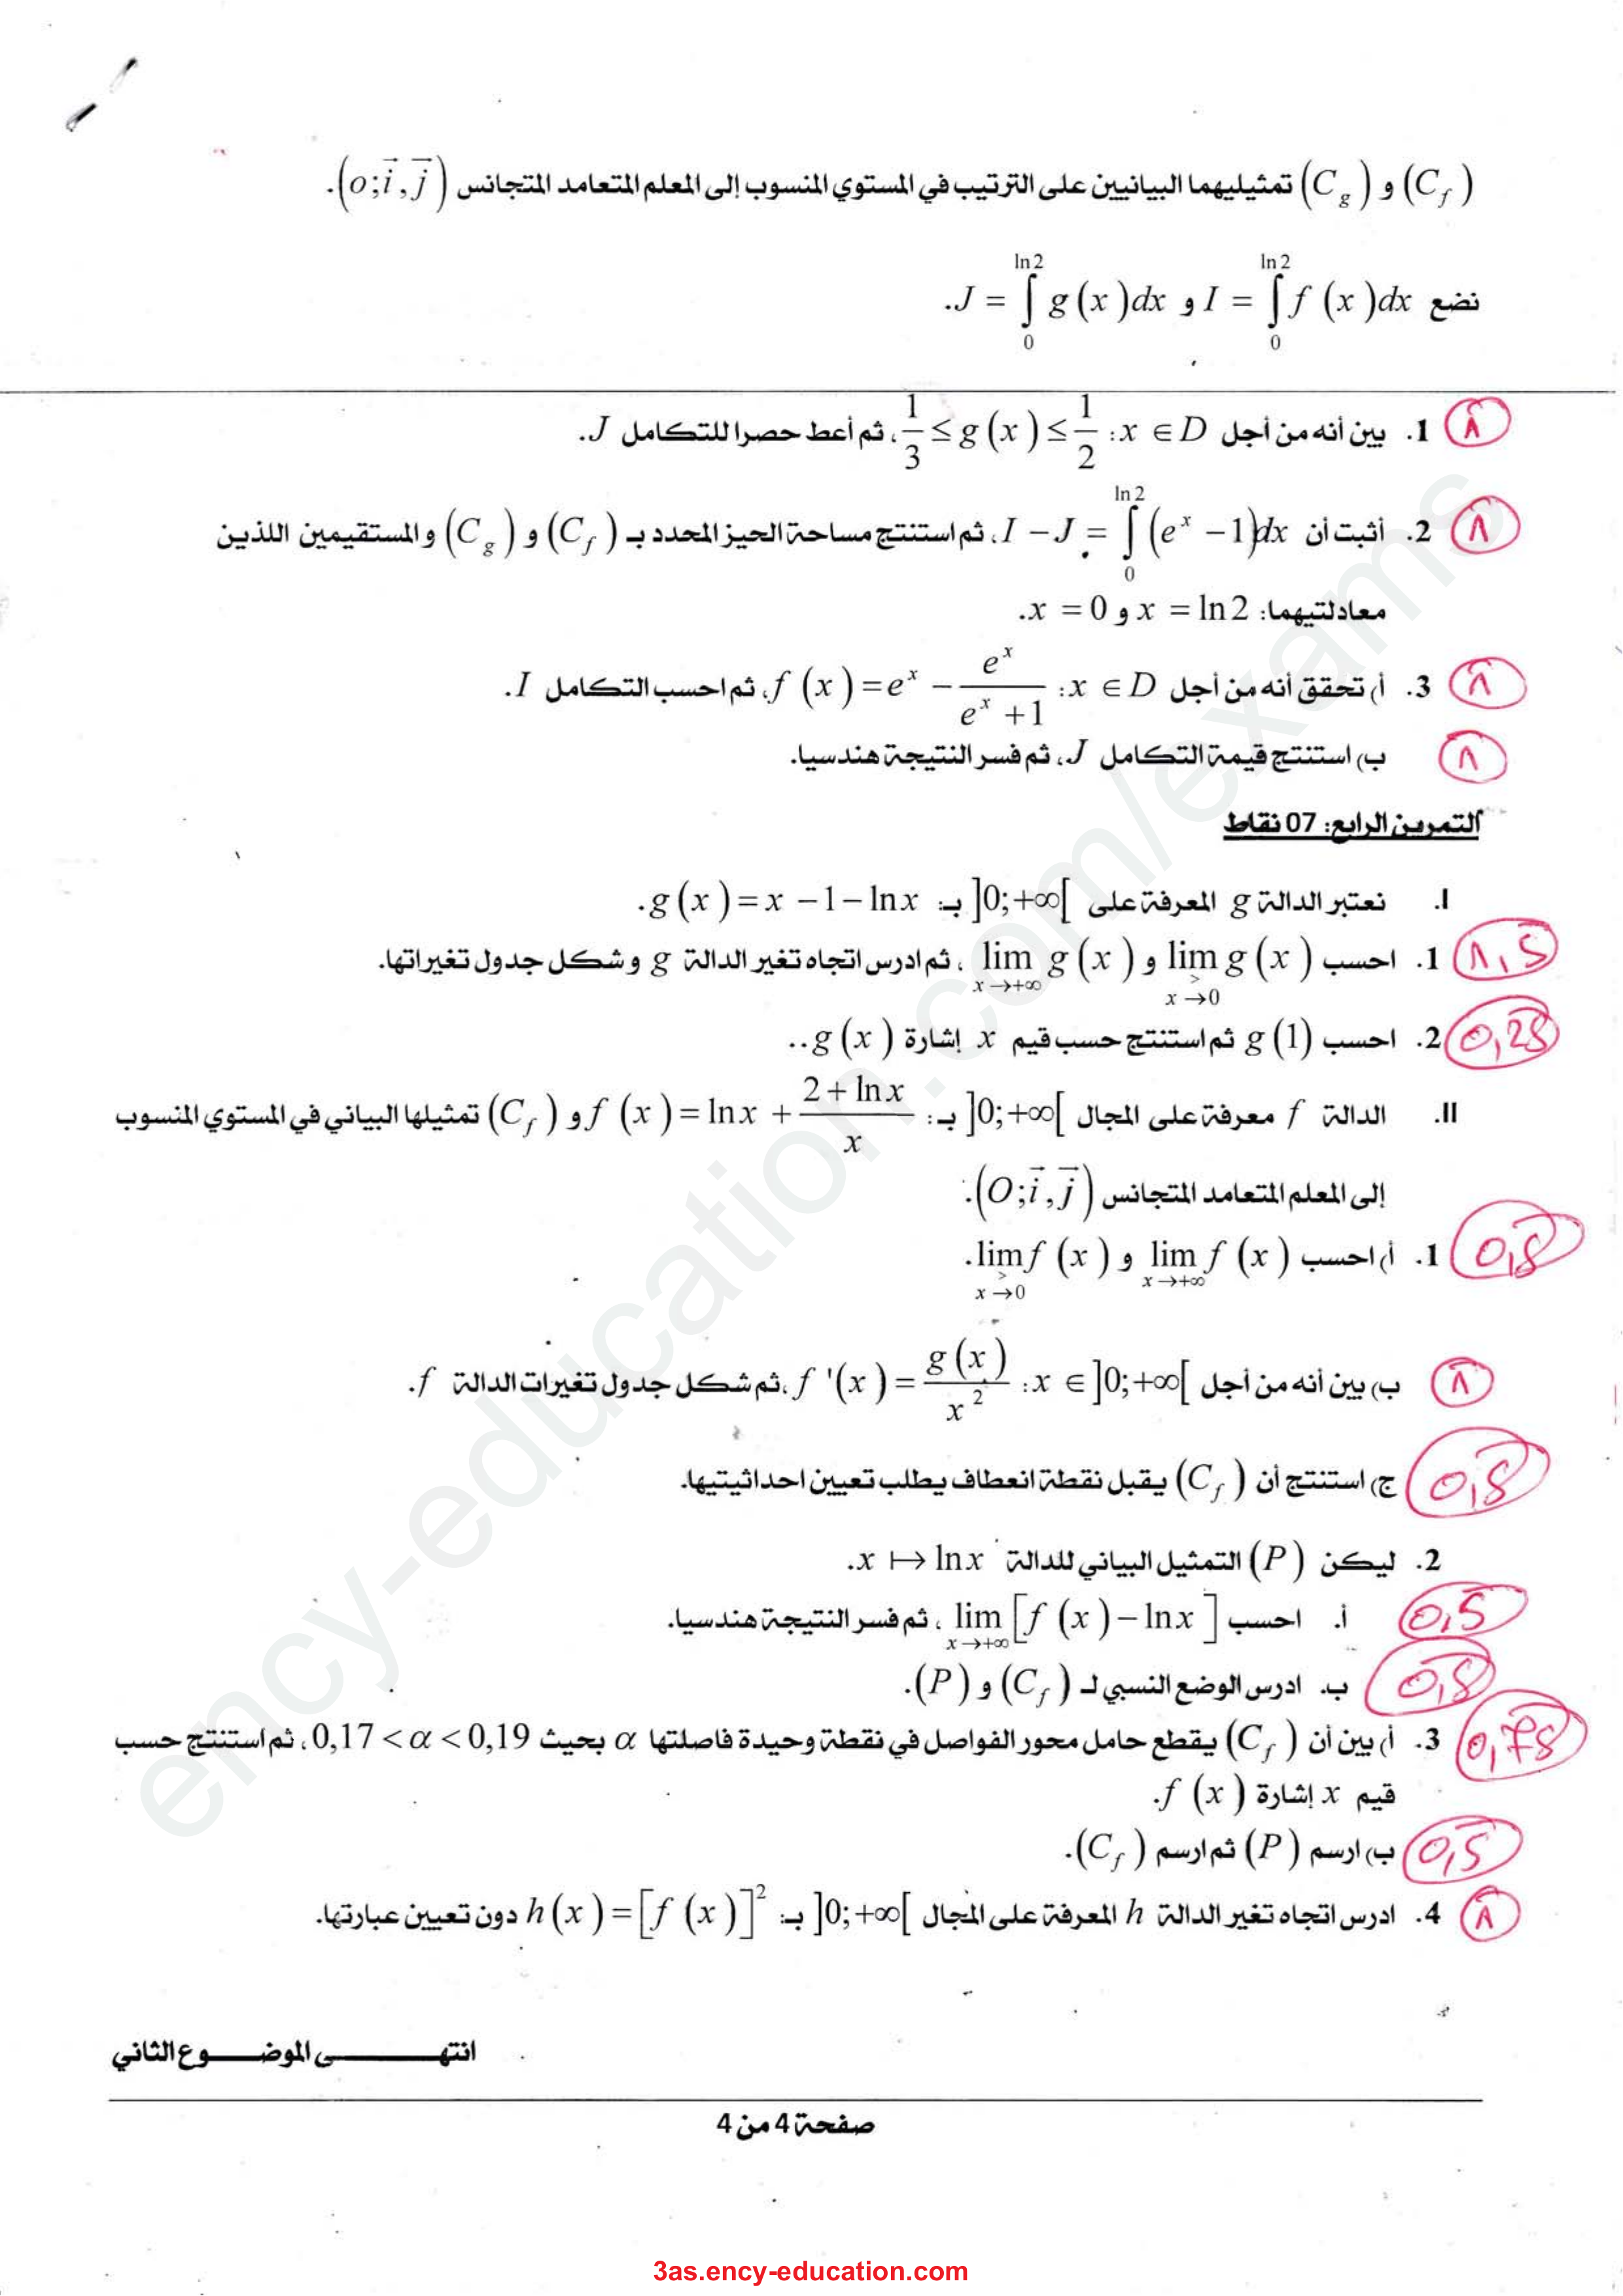 (C_f) و (C_g) تمثيليهما البيانيين على الترتيب في المستوي المنسوب إلى المعلم المتعامد المتجانس (o;i⃗,j⃗).
نضع I = ∫₀^{ln2} f(x)dx و J = ∫₀^{ln2} g(x)dx.
1. بين أنه من أجل x ∈ D: 1/3 ≤ g(x) ≤ 1/2، ثم أعط حصرا للتكامل J.
1
2. أثبت أن I − J = ∫₀^{ln2} (e^x − 1)dx، ثم استنتج مساحة الحيز المحدد بـ (C_f) و (C_g) والمستقيمين اللذين
1
معادلتيهما: x = ln2 و x = 0.
3. أ) تحقق أنه من أجل x ∈ D: f(x) = e^x − e^x/(e^x + 1)، ثم احسب التكامل I.
1
ب) استنتج قيمة التكامل J، ثم فسر النتيجة هندسيا.
1
التمرين الرابع: 07 نقاط
I. نعتبر الدالة g المعرفة على ]0;+∞[ بـ: g(x) = x − 1 − ln x.
1. احسب lim_{x→0, >} g(x) و lim_{x→+∞} g(x)، ثم ادرس اتجاه تغير الدالة g وشكل جدول تغيراتها.
1,5
2. احسب g(1) ثم استنتج حسب قيم x إشارة g(x)..
0,25
II. الدالة f معرفة على المجال ]0;+∞[ بـ: f(x) = ln x + (2 + ln x)/x و (C_f) تمثيلها البياني في المستوي المنسوب
إلى المعلم المتعامد المتجانس (O;i⃗,j⃗).
1. أ) احسب lim_{x→+∞} f(x) و lim_{x→0, >} f(x).
0,5
ب) بين أنه من أجل x ∈ ]0;+∞[: f'(x) = g(x)/x²، ثم شكل جدول تغيرات الدالة f.
1
ج) استنتج أن (C_f) يقبل نقطة انعطاف يطلب تعيين احداثيتيها.
0,5
2. ليكن (P) التمثيل البياني للدالة x ↦ ln x.
أ. احسب lim_{x→+∞} [f(x) − ln x]، ثم فسر النتيجة هندسيا.
0,5
ب. ادرس الوضع النسبي لـ (C_f) و (P).
0,5
3. أ) بين أن (C_f) يقطع حامل محور الفواصل في نقطة وحيدة فاصلتها α بحيث 0,17 < α < 0,19، ثم استنتج حسب
0,75
قيم x إشارة f(x).
ب) ارسم (P) ثم ارسم (C_f).
0,5
4. ادرس اتجاه تغير الدالة h المعرفة على المجال ]0;+∞[ بـ: h(x) = [f(x)]² دون تعيين عبارتها.
1
انتهـــى الموضـــوع الثاني
صفحة 4 من 4
ency-education.com/exams
3as.ency-education.com